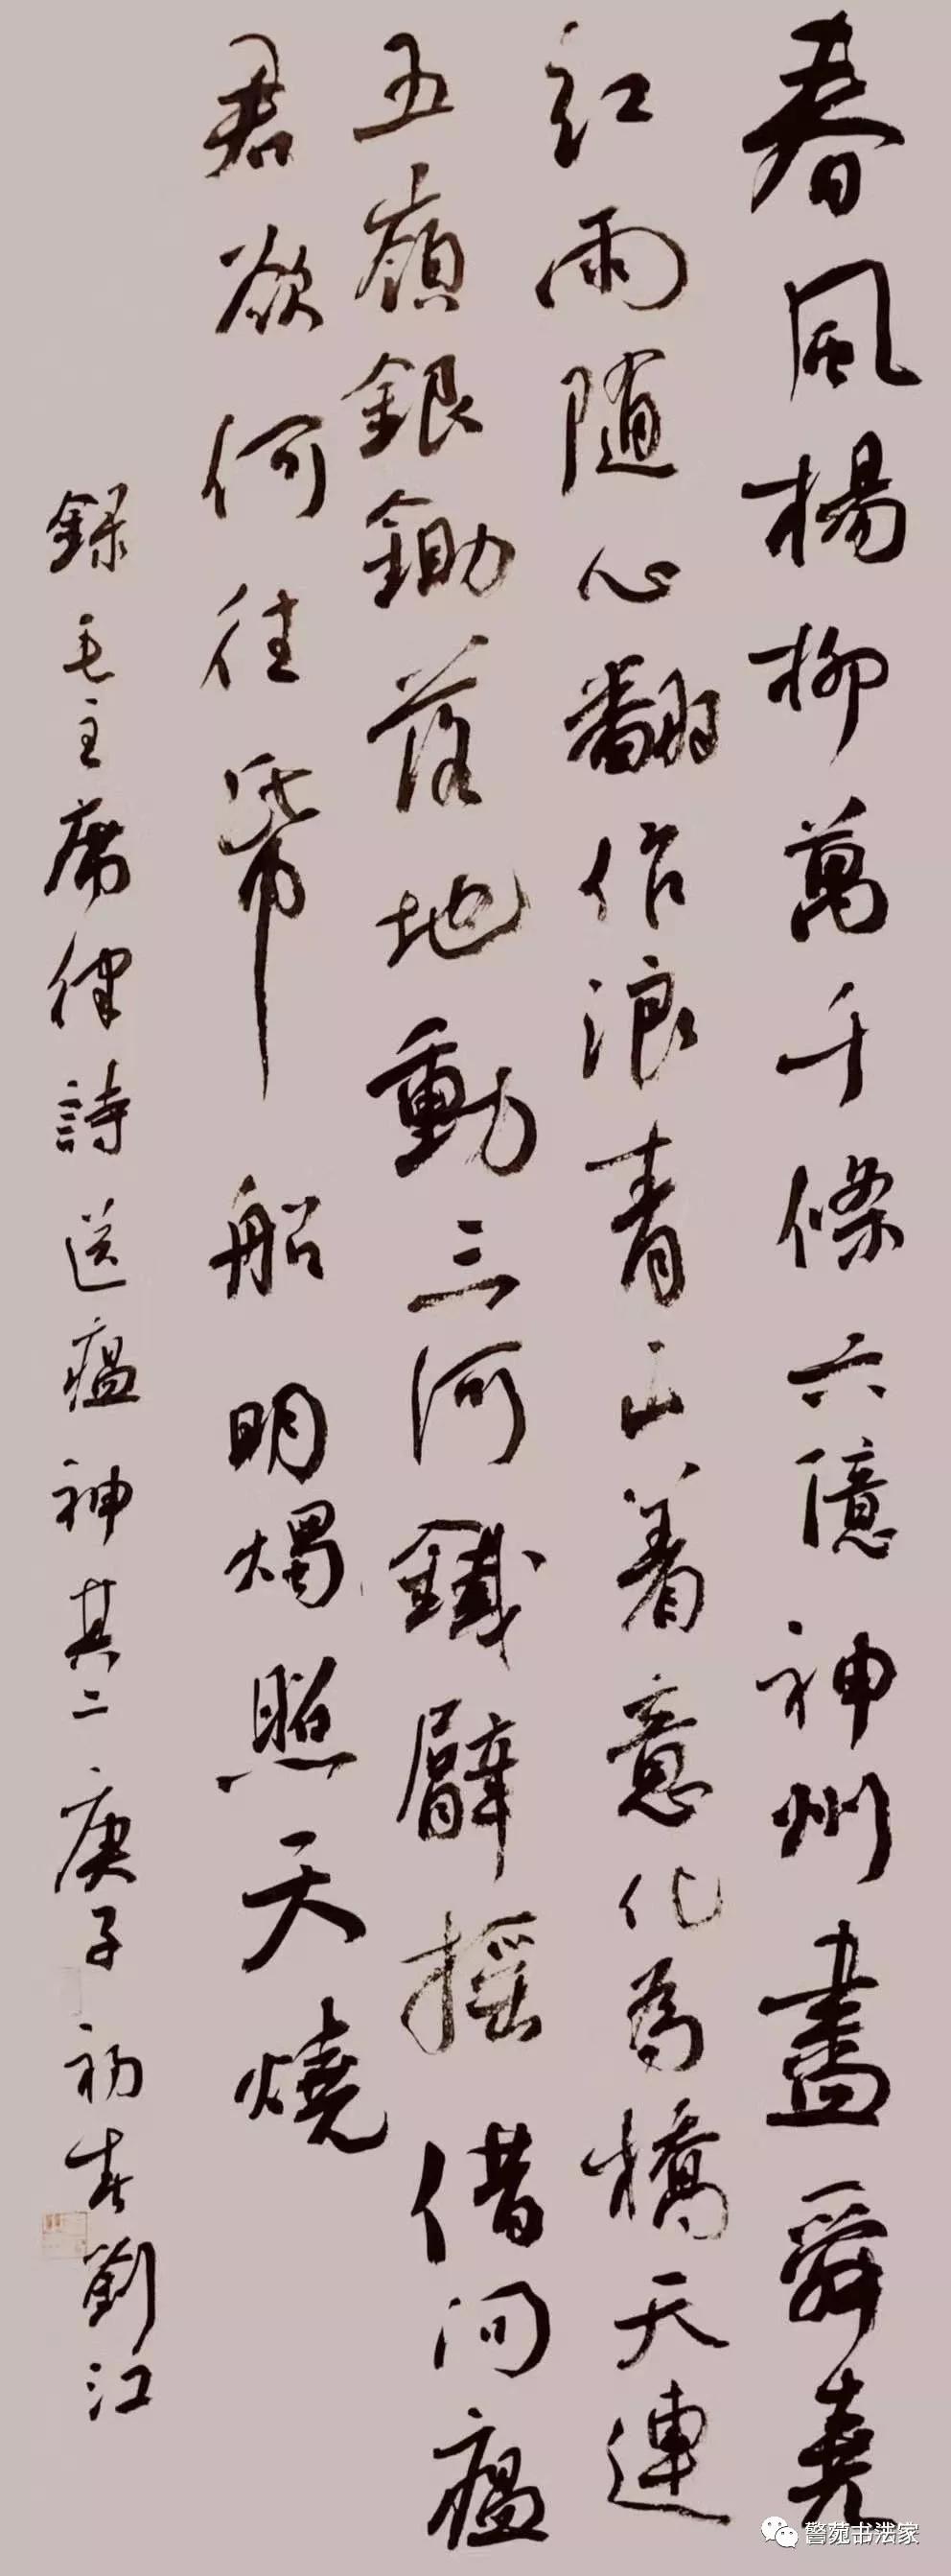 春風楊柳萬千條六億神州盡舜堯
紅雨隨心翻作浪青山着意化為橋天連
五嶺銀鋤落地動三河鐵臂搖借问瘟
君欲何往紙船明燭照天燒
錄毛主席律詩送瘟神其二庚子初春劉江
警苑书法家